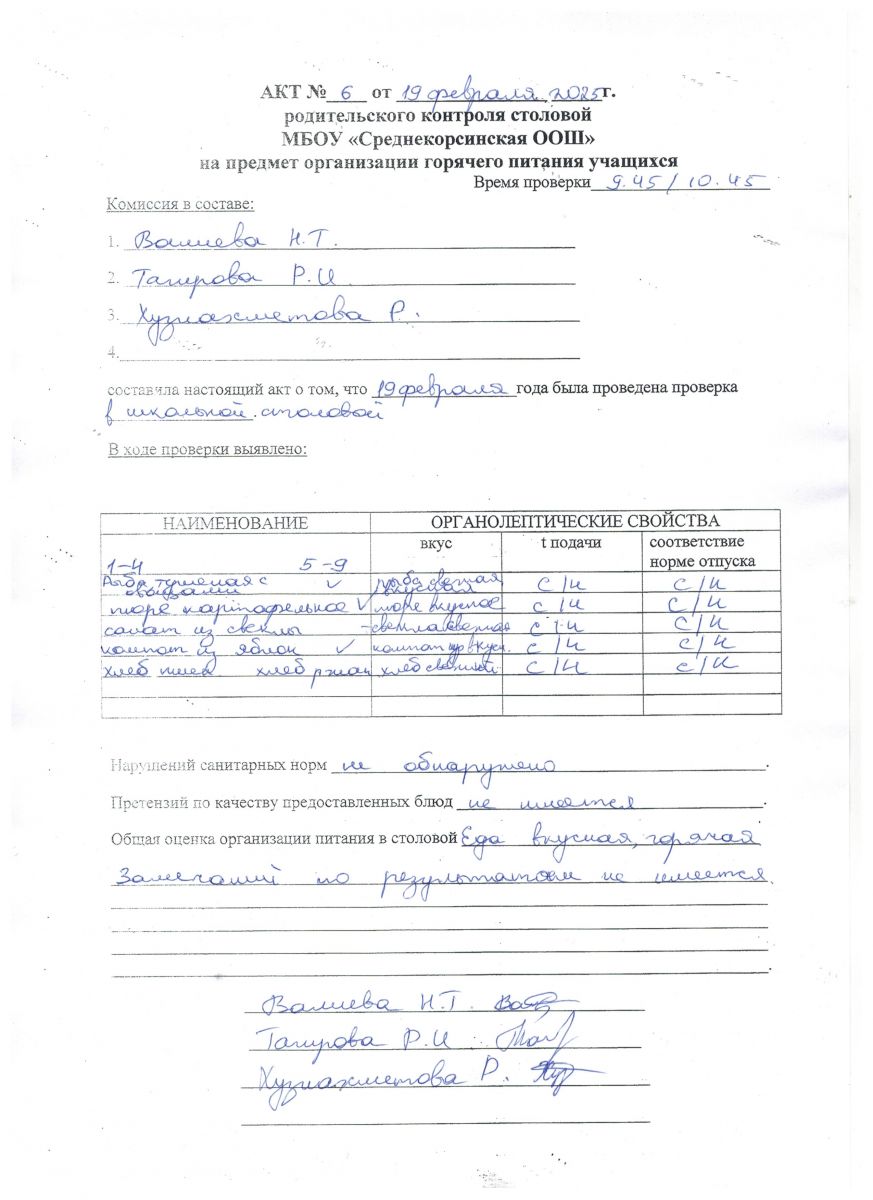 АКТ № 6 от 19 февраля 2025г.
родительского контроля столовой
МБОУ «Среднекорсинская ООШ»
на предмет организации горячего питания учащихся
Время проверки 9.45 / 10.45
Комиссия в составе:
1. Валиева Н.Т.
2. Тагирова Р.И
3. Хузиахметова Р.
4.
составила настоящий акт о том, что 19 февраля года была проведена проверка
в школьной столовой
В ходе проверки выявлено:
НАИМЕНОВАНИЕ ОРГАНОЛЕПТИЧЕСКИЕ СВОЙСТВА
вкус t подачи соответствие
1-4 5-9 норме отпуска
Рыба тушеная с овощами ✓ рыба свежая вкусная с/н с/н
пюре картофельное ✓ пюре вкусное с/н с/н
салат из свеклы - свекла свежая с/н с/н
компот из яблок ✓ компот вкусн. с/н с/н
хлеб пшен хлеб ржан хлеб свежий с/н с/н
Нарушений санитарных норм не обнаружено.
Претензий по качеству предоставленных блюд не имеется.
Общая оценка организации питания в столовой Еда вкусная, горячая
Замечаний по результатам не имеется.
Валиева Н.Т.
Тагирова Р.И
Хузиахметова Р.